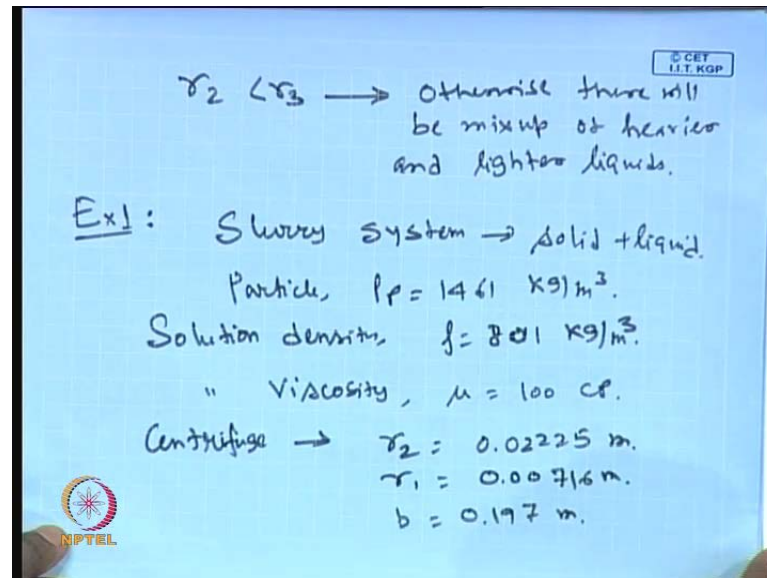 © CET
I.I.T. KGP
r₂ < r₃ → Otherwise there will
be mixup of heavier
and lighter liquids.
Ex1: Slurry system → solid + liquid.
Particle, ρp = 1461 kg/m³.
Solution density, ρ = 801 kg/m³.
" Viscosity, μ = 100 cP.
Centrifuge → r₂ = 0.02225 m.
r₁ = 0.00716 m.
b = 0.197 m.
NPTEL